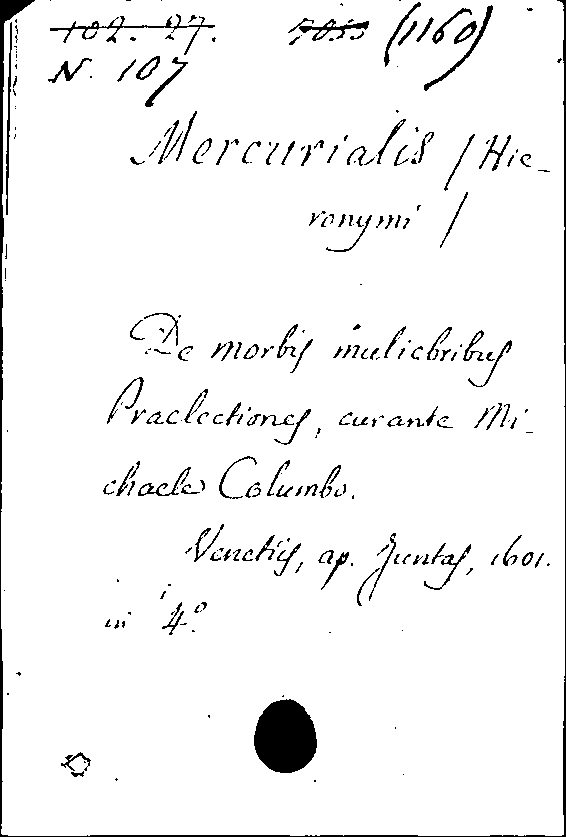 102. 27. 7033 (1160)
N. 107
Mercurialis / Hie-
ronymi /
De morbis muliebribus
Praelectiones, curante Mi-
chaele Columbo.
Venetiis, ap. Juntas, 1601.
in 4º